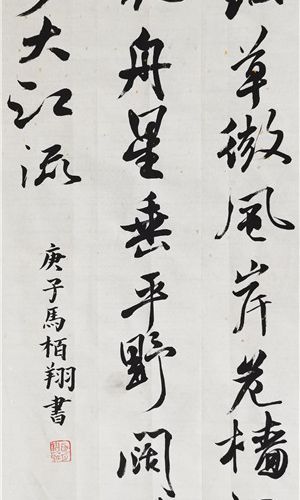 草微風岸危檣
舟星垂平野闊
大江流
庚子馬栢翔書